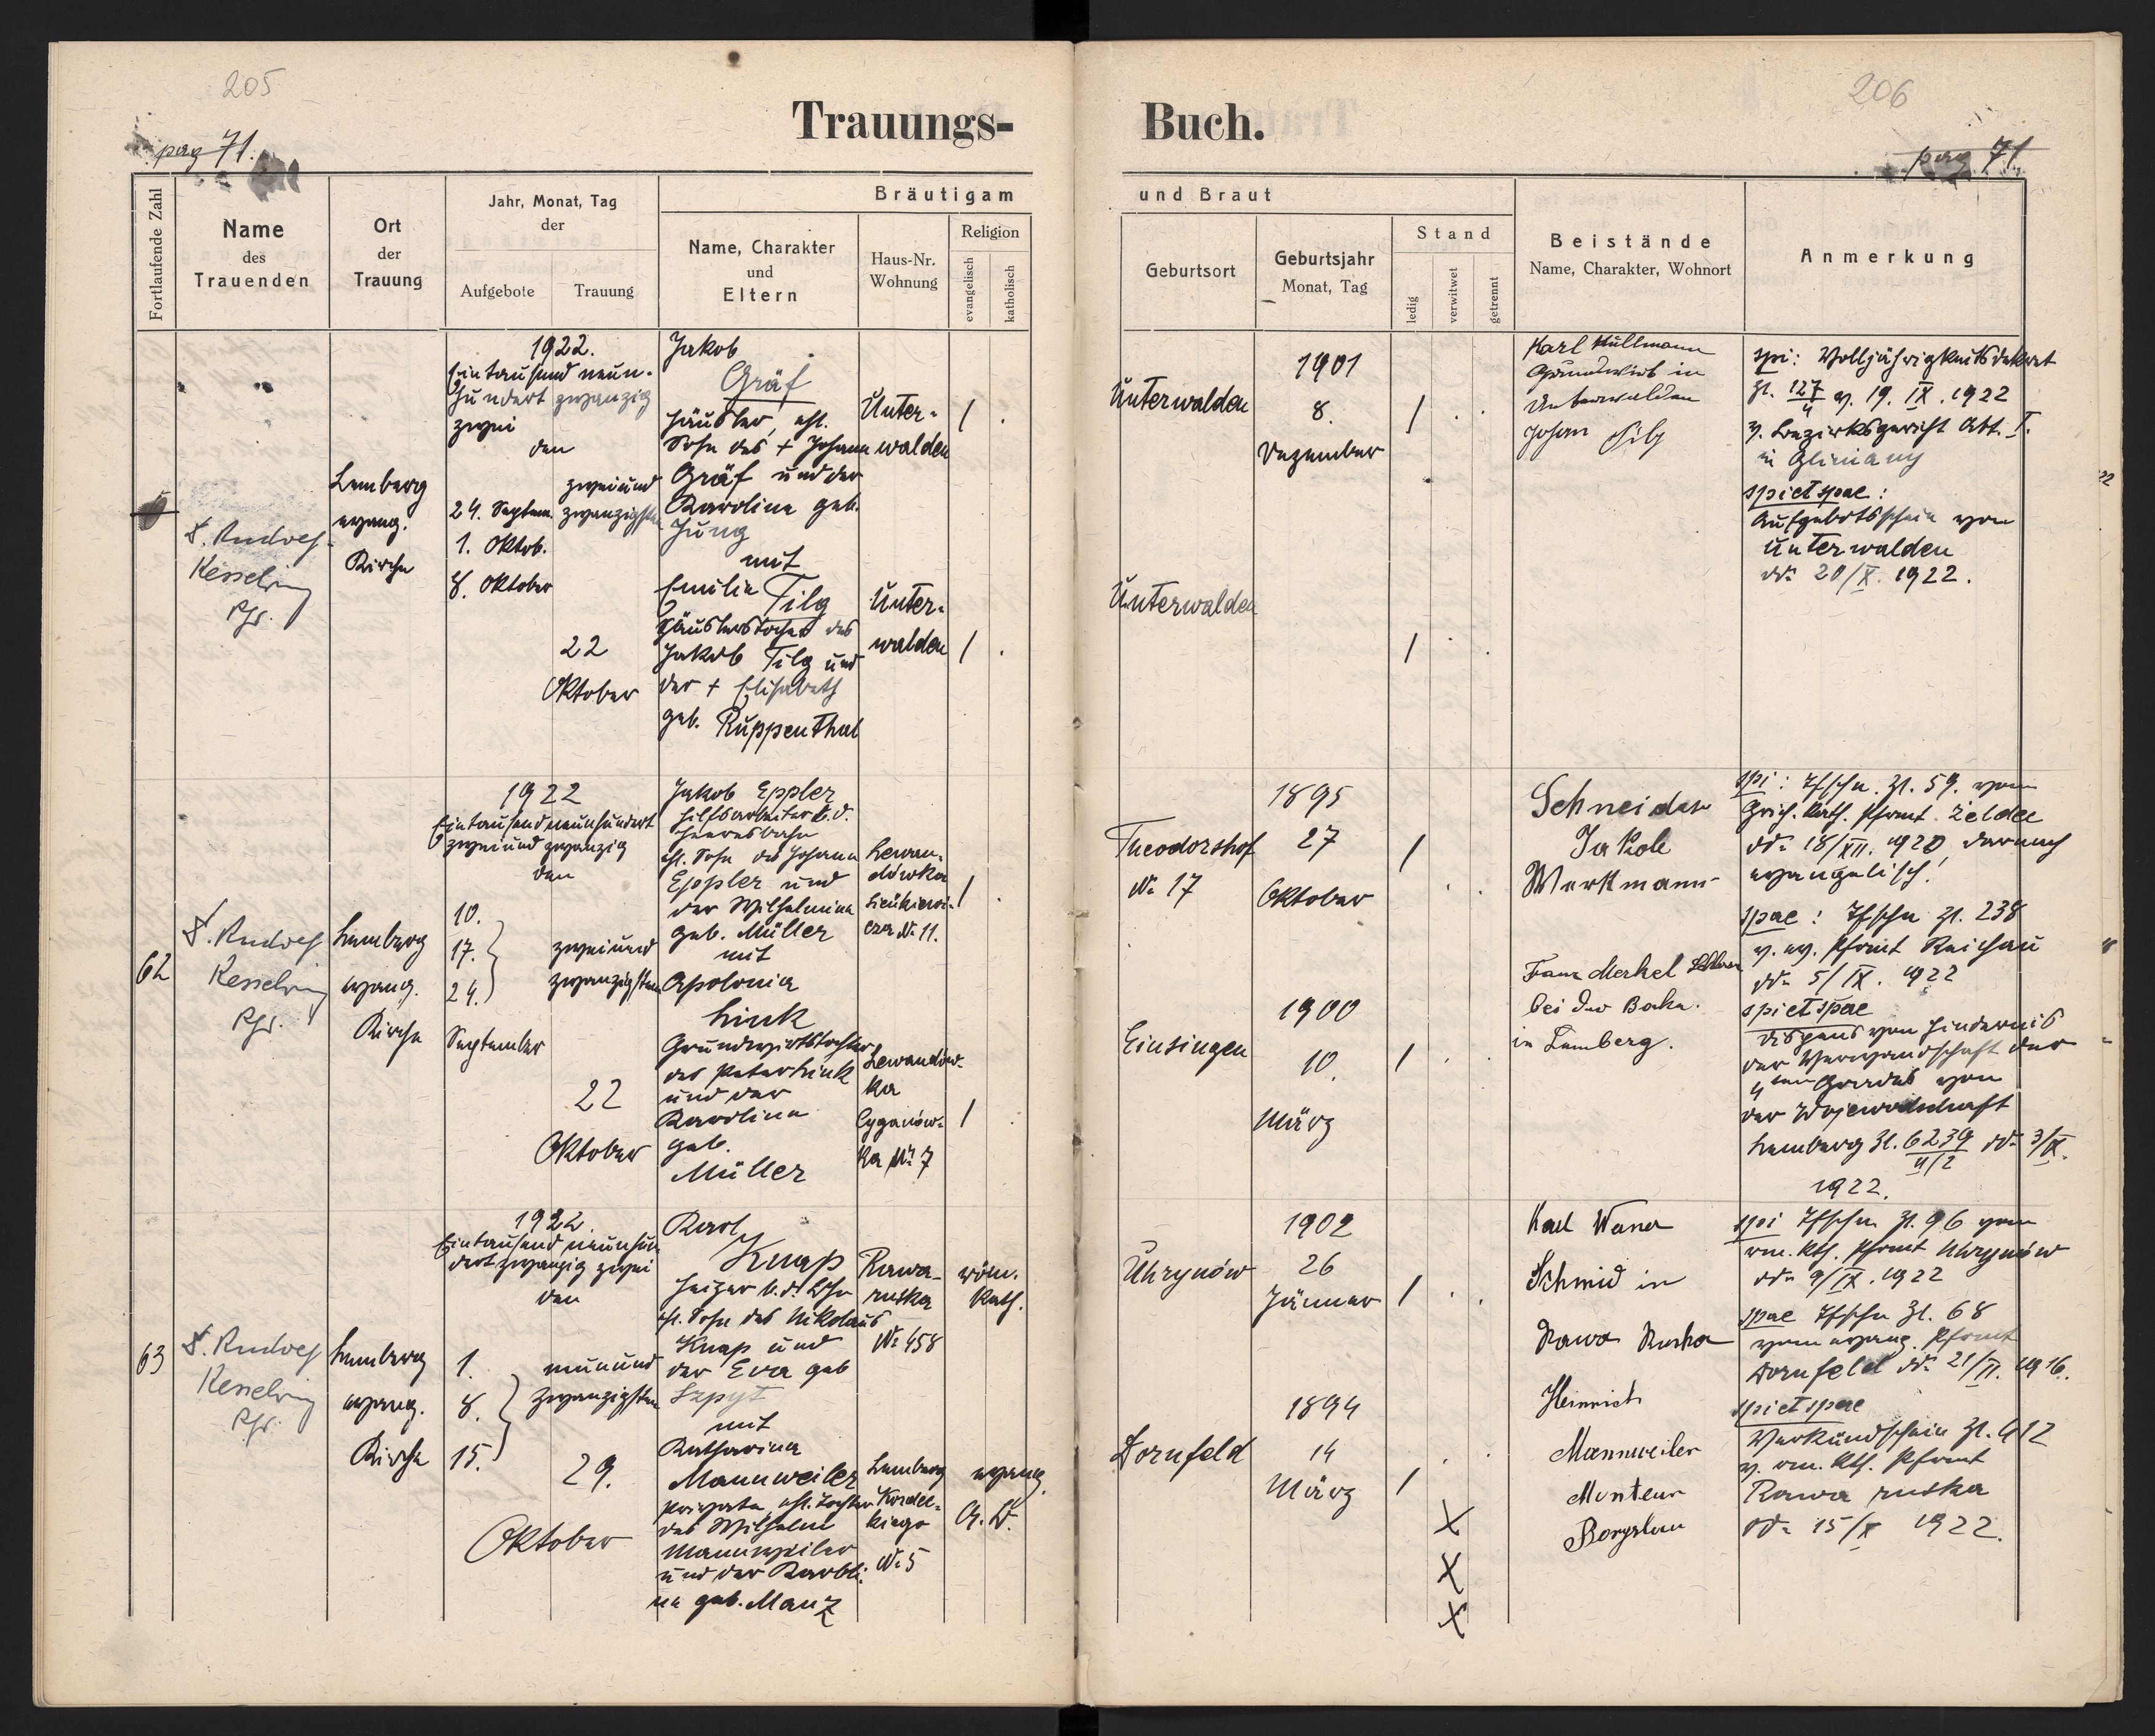 205
206
Trauungs-
Buch.
pag 71.
pag 71.
Fortlaufende Zahl
Name
des
Trauenden
Ort
der
Trauung
Jahr, Monat, Tag
der
Aufgebote
Trauung
Bräutigam
Name, Charakter
und
Eltern
Haus-Nr.
Wohnung
Religion
evangelisch
katholisch
und Braut
Geburtsort
Geburtsjahr
Monat, Tag
Stand
ledig
verwitwet
getrennt
Beistände
Name, Charakter, Wohnort
Anmerkung
Rudolf
Kesselring
Pfr.
Lemberg
evang.
Kirche
1922.
Eintausend neun-
hundert zwanzig
zwei
den
24. Septem.
1. Oktob.
8. Oktober
zweiund
zwanzigsten
22
Oktober
Jakob
Gräf
Häusler, ehl.
Sohn des + Johann
Gräf und der
Karolina geb.
Jung
mit
Emilie Tilg
Häuslerstochter des
Jakob Tilg und
der + Elisabeth
geb. Ruppenthal
Unter-
walden
/
Unter-
walden
/
Unterwalden
1901
8.
Dezember
/
Unterwalden
/
Karl Hüllmann
Grundwirt in
Unterwalden
Johan Tilg
spi: Volljährigkeitsdekret
Zl. 127/4 v. 19. IX. 1922
v. Bezirksgericht Abt. I.
in Gliniany
spi et spae:
Aufgebotsschein von
Unterwalden
ddo 20/X. 1922.
62
Rudolf
Kesselring
Pfr.
Lemberg
evang.
Kirche
1922
Eintausendneunhundert
zweiundzwanzig
den
10.
17.
24.
September
zweiund
zwanzigsten
22
Oktober
Jakob Eppler
Hilfsarbeiter b. d.
ehl. Sohn des Johann
Eppler und
der Wilhelmina
geb. Müller
mit
Apolonia
Link
Grundwirtstochter
des Peter Link
und der
Karolina
geb.
Müller
Lewan-
dówka
Sienkiewi-
cza No 11.
/
Lewandów-
ka
Cyganów-
ka No 7
/
Theodorshof
No 17
1895
27
Oktober
/
Einsingen
1900
10.
März
/
Schneider
Jakob
Werkmann
Franz Merkel
bei der Bahn.
in Lemberg.
spi: Tfschn. Zl. 59. vom
Griech. kath. Pframt Zeldec
ddo 18/XII. 1920, darnach
evangelisch!
spae: Tfschn Zl. 238
v. ev. Pframt Reichau
ddo 5/IX. 1922
spi et spae
Dispens vom Hindernis
der Verwandschaft der
4ten Grades von
der Wojewodschaft
Lemberg Zl. 6239/4/2 ddo 3/IX.
1922.
63
Rudolf
Kesselring
Pfr.
Lemberg
evang.
Kirche
1922.
Eintausend neunhun
dertzwanzig zwei
den
1.
8.
15.
neunund
zwanzigsten
29.
Oktober
Karl
Knap
Heizer b. d.
ehl. Sohn des Nikolaus
Knap und
der Eva geb
Szpyt
mit
Katharina
Mannweiler
Private, ehl. Tochter
des Wilhelm
Mannweiler
und der Karoli-
na geb. Manz
Rawa-
ruska
No 458
röm.
kath.
Lemberg
Kordec-
kiego
No 5
evang.
A. B.
Uhrynów
1902
26
Jänner
/
Dornfeld
1894
14
März
/
X
X
X
Karl Waner
Schmid in
Rawa Ruska
Heinrich
Mannweiler
Monteur
Boryslau
spi Tfschn Zl. 96 vom
röm. kth. Pframt Uhrynów
ddo 9/IX. 1922
spae Tfschn Zl. 68
vom evang. Pframt
Dornfeld ddo 21/II. 1916.
spi et spae
Verkündschein Zl. 412
v. röm. kth. Pframt
Rawa ruska
ddo 15/X 1922.